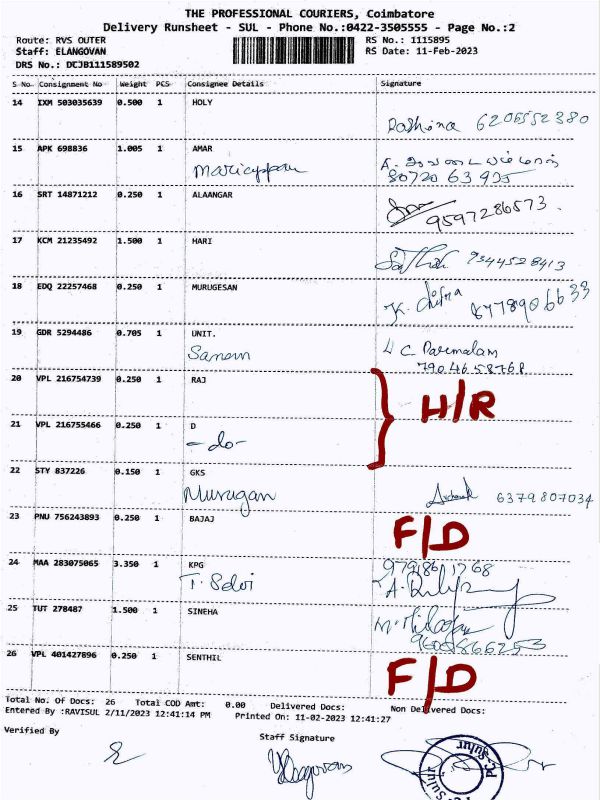 THE PROFESSIONAL COURIERS, Coimbatore
Delivery Runsheet - SUL - Phone No.:0422-3505555 - Page No.:2
Route: RVS OUTER RS No.: 1115895
Staff: ELANGOVAN RS Date: 11-Feb-2023
DRS No.: DCJB111589502
S No Consignment No Weight PCS Consignee Details Signature
14 IXM 503035639 0.500 1 HOLY
Rashina 6206552380
15 APK 698836 1.005 1 AMAR
Mariappan
80720 63935
16 SRT 14871212 0.250 1 ALAANGAR
9597286573
17 KCM 21235492 1.500 1 HARI
9344528413
18 EDQ 22257468 0.250 1 MURUGESAN
K. Chitra 8778906633
19 GDR 5294486 0.705 1 UNIT.
C Parimalam
7904658768
20 VPL 216754739 0.250 1 RAJ
H/R
21 VPL 216755466 0.250 1 D
-do-
22 STY 837226 0.150 1 GKS
Murugan 6379807034
23 PNU 756243893 0.250 1 BAJAJ
F/D
24 MAA 283075065 3.350 1 KPG
T. Selvi
25 TUT 278487 1.500 1 SINEHA
26 VPL 401427896 0.250 1 SENTHIL
F/D
Total No. Of Docs: 26 Total COD Amt: 0.00 Delivered Docs: Non Delivered Docs:
Entered By :RAVISUL 2/11/2023 12:41:14 PM Printed On: 11-02-2023 12:41:27
Verified By
Staff Signature
Elangovan